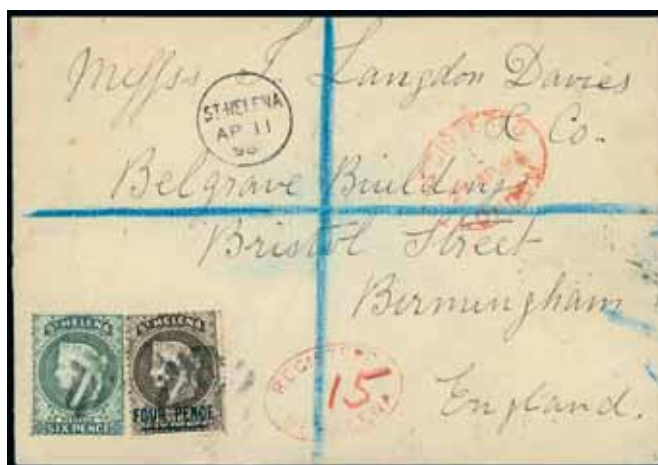 Messrs J. Langdon Davies
& Co.
ST. HELENA
AP 11
Belgrave Buildings
Bristol Street
Birmingham
England.
REGISTERED
15
ST. HELENA
SIX PENCE
ST. HELENA
FOUR PENCE